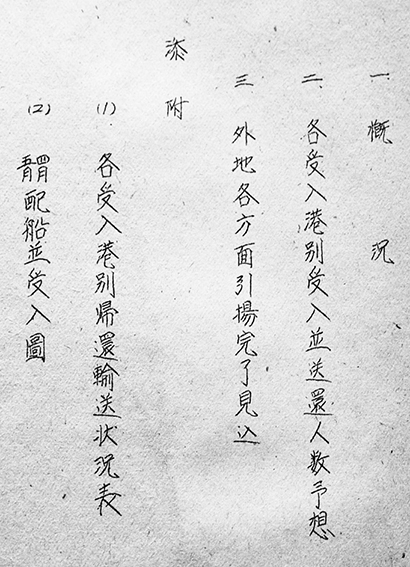 一 概況
二 各受入港別受入並送還人数予想
三 外地各方面引揚完了見込
添附
(1) 各受入港別帰還輸送状況表
(2) 配船並受入圖